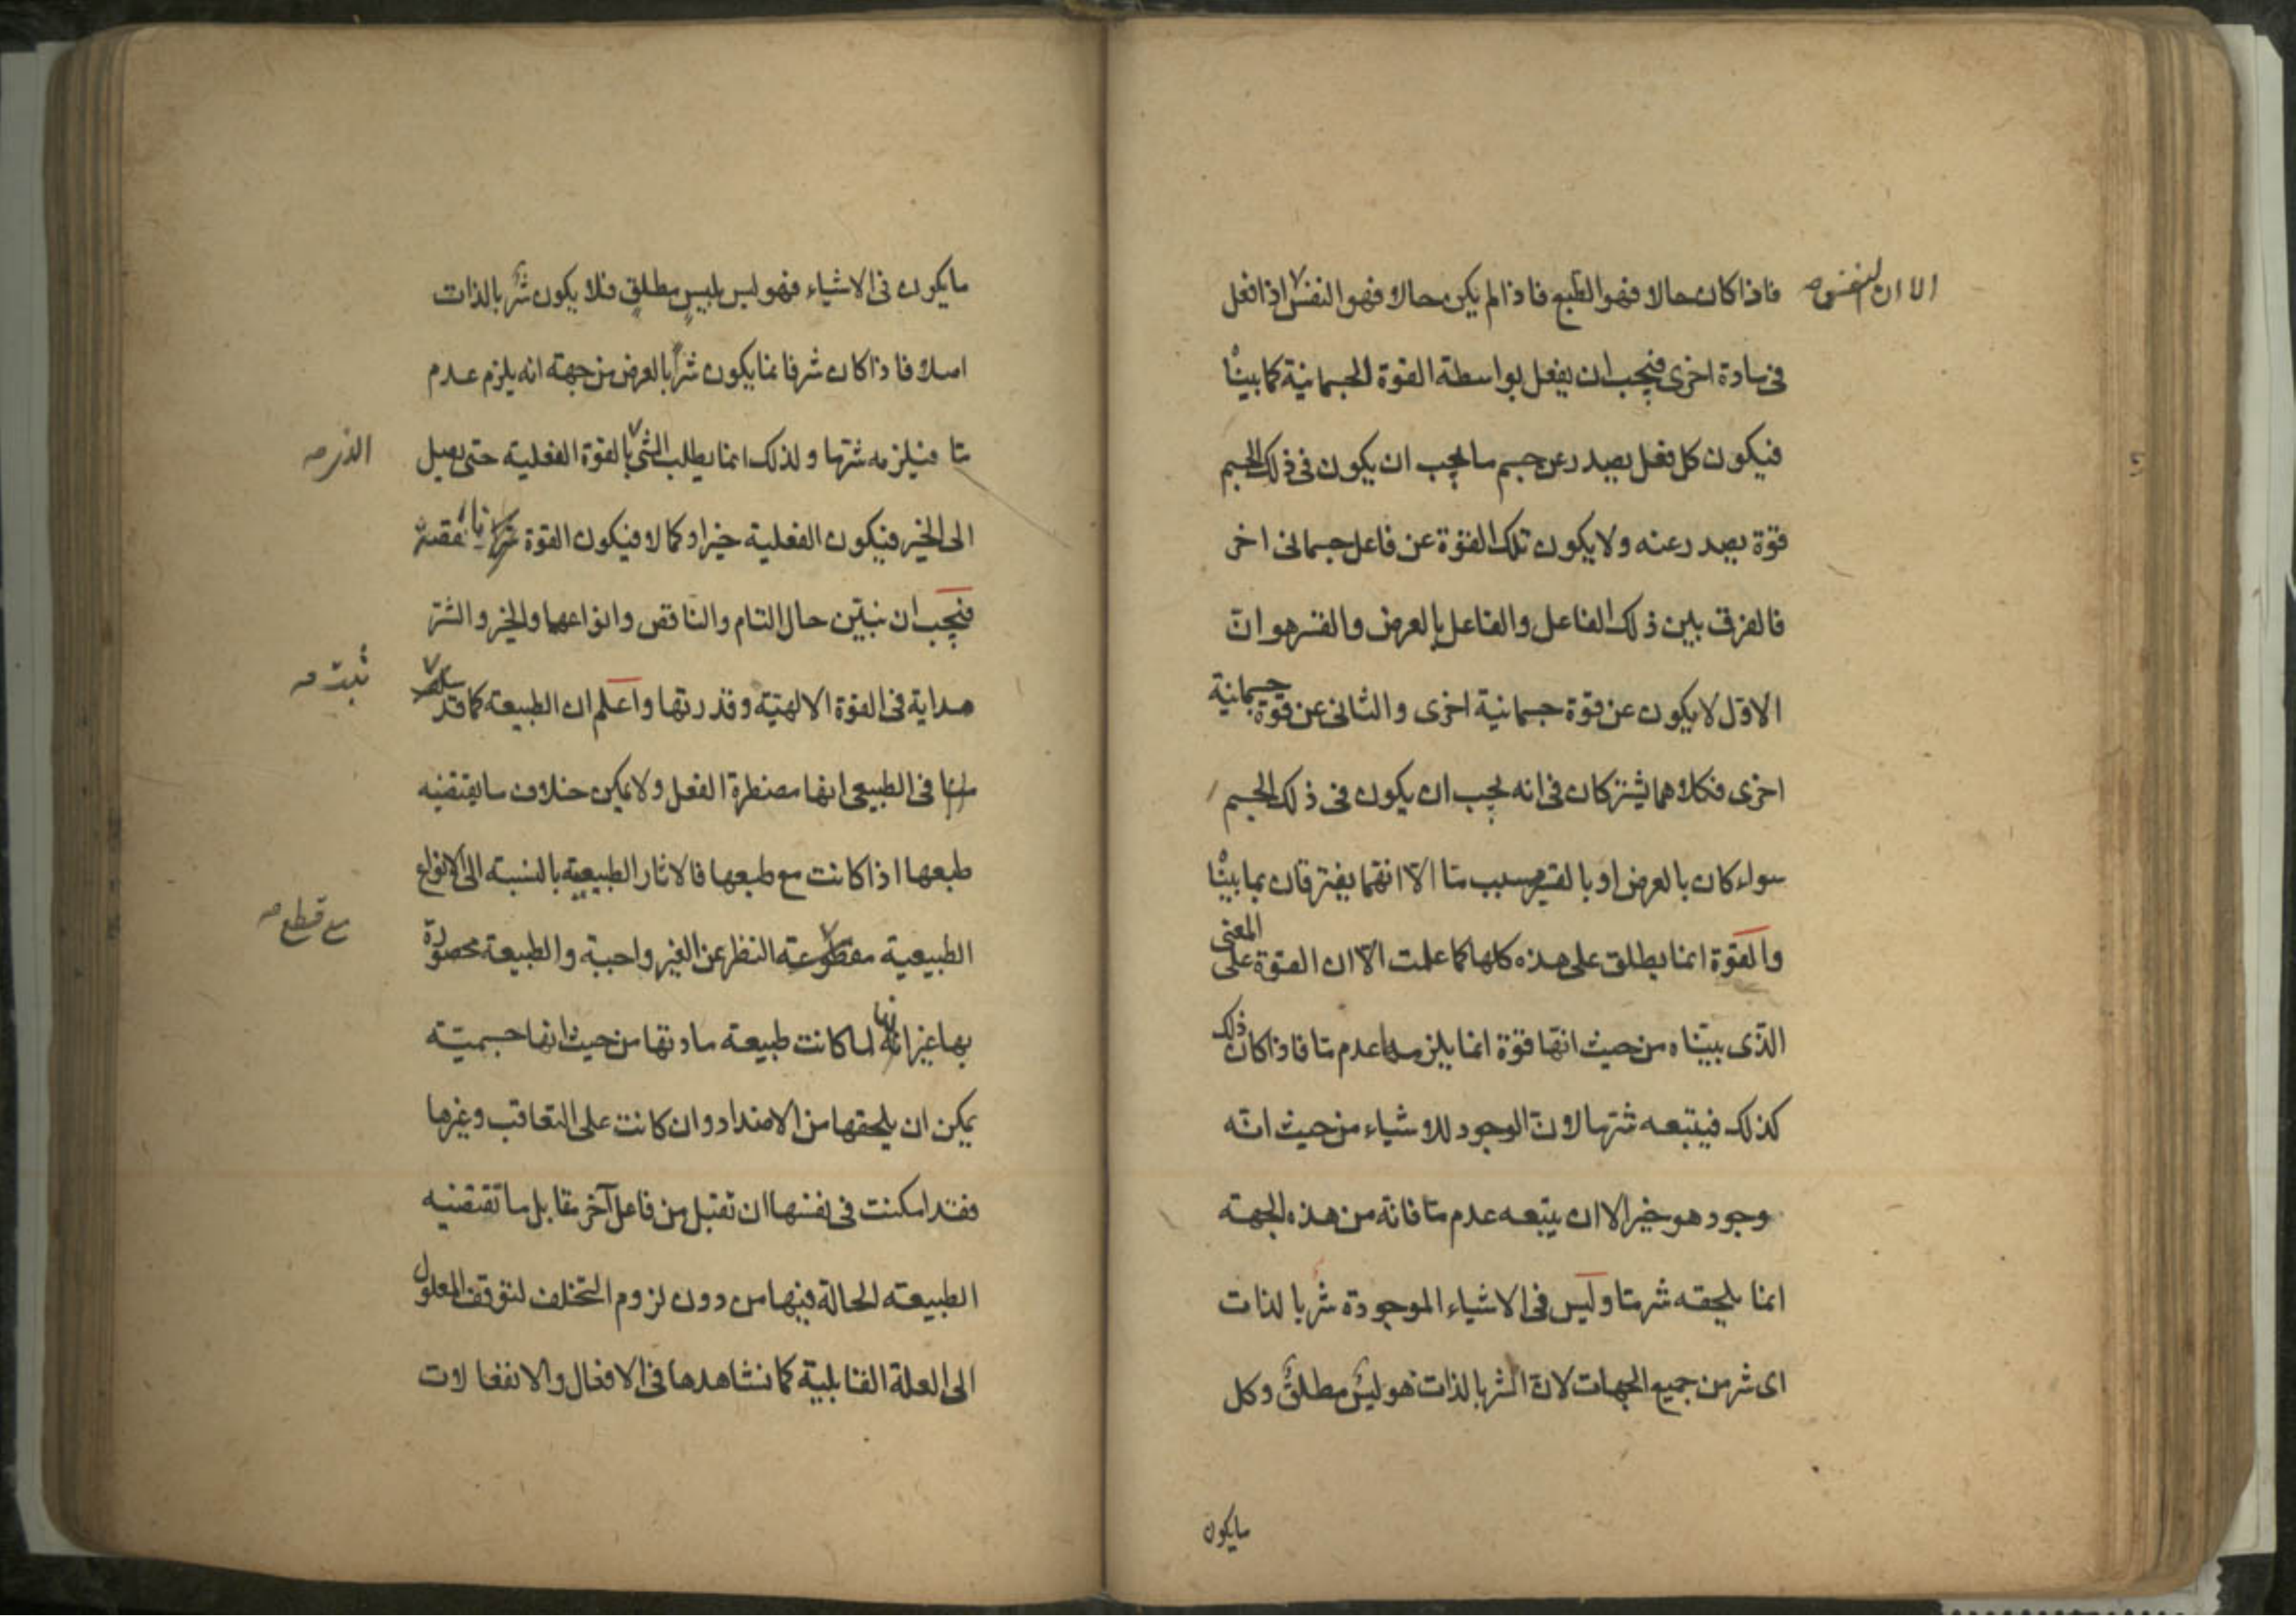 فاذا كان حالا فهو الطبع فاذا لم يكن حالا فهو النفس اذا فعل
الا ان النفس صه
فى مادة اخرى فيجب ان يفعل بواسطة القوة الجسمانية كما بينّا
فيكون كل فعل يصدر عن جسم ما يجب ان يكون فى ذلك الجسم
قوة يصدر عنه ولا يكون تلك القوة عن فاعل جسمانى اخر
فالفرق بين ذلك الفاعل والفاعل بالعرض والقسر هو انّ
الاوّل لا يكون عن قوة جسمانية اخرى والثانى عن قوة جسمانية
اخرى فكلاهما يشتركان فى انه يجب ان يكون فى ذلك الجسم
سواء كان بالعرض او بالقسر بسبب مّا الّا انهّما يفترقان بما بينّا
والقوة انما يطلق على هذه كلها كما علمت الّا ان القوة على المعنى
الذّى بيّناه من حيث انهّا قوة انما يلزمها عدم مّا فاذا كان ذلك
كذلك فيتبعه شرّها لانّ الوجود للاشياء من حيث انّه
وجود هو خير الا ان يتبعه عدم مّا فانّه من هذه الجهة
انما يلحقه شر مّا وليس فى الاشياء الموجودة شرّ بالذات
اى شر من جميع الجهات لانّ الشر بالذات هو ليسٌ مطلقٌ وكل
مايكون
مايكون فى الاشياء فهو ليس بليسٍ مطلقٍ فلا يكون شرٌ بالذات
اصلا فاذا كان شر فانما يكون شراً بالعرض من جهة انه يلزم عدم
مّا فيلزمه شرّها ولذلك انما يطلب الشئ بالقوة الفعلية حتى يصل
الذى صه
الى الخير فيكون الفعلية خيرا وكمالا فيكون القوة
فيجب ان نبيّن حال التام والناقص وانواعهما والخير والشرّ
هداية فى القوة الالهيّة وقدرتها واعلم ان الطبيعة كما قد
ثبت صه
فى الطبيعى انها مضطرة الفعل ولا يمكن خلاف ما يقتضيه
طبعها اذا كانت مع طبعها فالاثار الطبيعية بالنسبة الى الانواع
الطبيعية مقطوعة النظر عن الغير واجبة والطبيعة محصورة
مع قطع صه
بها غير انها لما كانت طبيعة مادتها من حيث انها جسميّة
يمكن ان يلحقها من الاضداد وان كانت على التعاقب وغيرها
فقد امكنت فى نفسها ان تقبل من فاعل آخر مقابل ما تقتضيه
الطبيعة الحالّة فيها من دون لزوم التخلف لتوقف المعلول
الى العلة القابلية كما نشاهدها فى الافعال والانفعالات